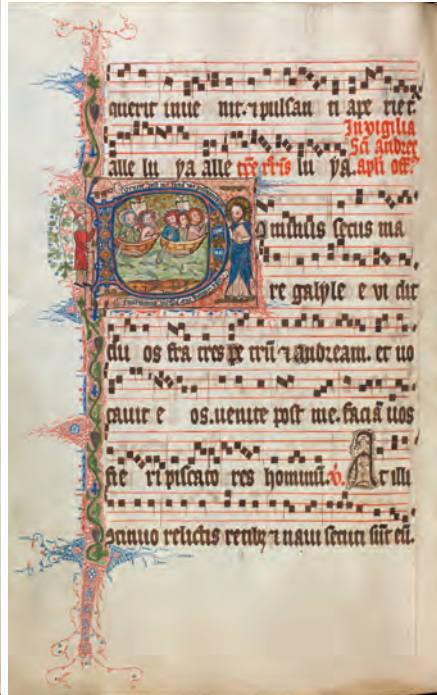 querit inue nit. ⁊ pulsan ti ape riet.
In vigilia
Sci Andree
alle lu ya alle tpe lu ya. apli off.
D minus secus ma
re galyle e vi dit
du os fra tres pe trũ ⁊ andream. et uo
cauit e os. uenite post me. faciã uos
fie ri piscato res hominũ. V. At illi
relictis retibꝫ ⁊ naui secuti sũt eũ.